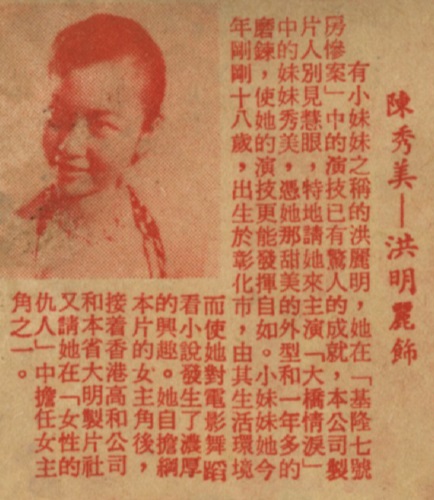 陳秀美—洪明麗飾
有小妹妹之稱的洪麗明，她在「基隆七號
房慘案」中的演技已有驚人的成就，本公司製
片人別見慧眼，特地請她來主演「大橋情淚」
中的妹妹秀美，憑她那甜美的外型和一年多的
磨鍊，使她的演技更能發揮自如。小妹妹她今
年剛剛十八歲，出生於彰化市，由其生活環境
而使她對電影舞蹈
看小說發生了濃厚
的興趣。她自擔綱
本片的女主角後，
接着香港高和公司
和本省大明製片社
又請她在「女性的
仇人」中擔任女主
角之一。